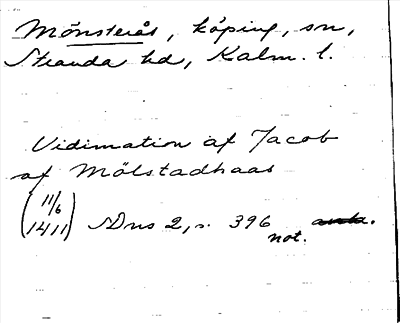 Mönsterås, köping, sn,
Stranda hd, Kalm. l.
Vidimation af Jacob
af Mölstadhaas
(11/6
1411) SDns 2, s. 396
not.